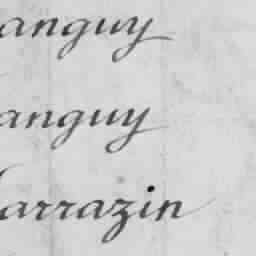 anguy
anguy
arrazin